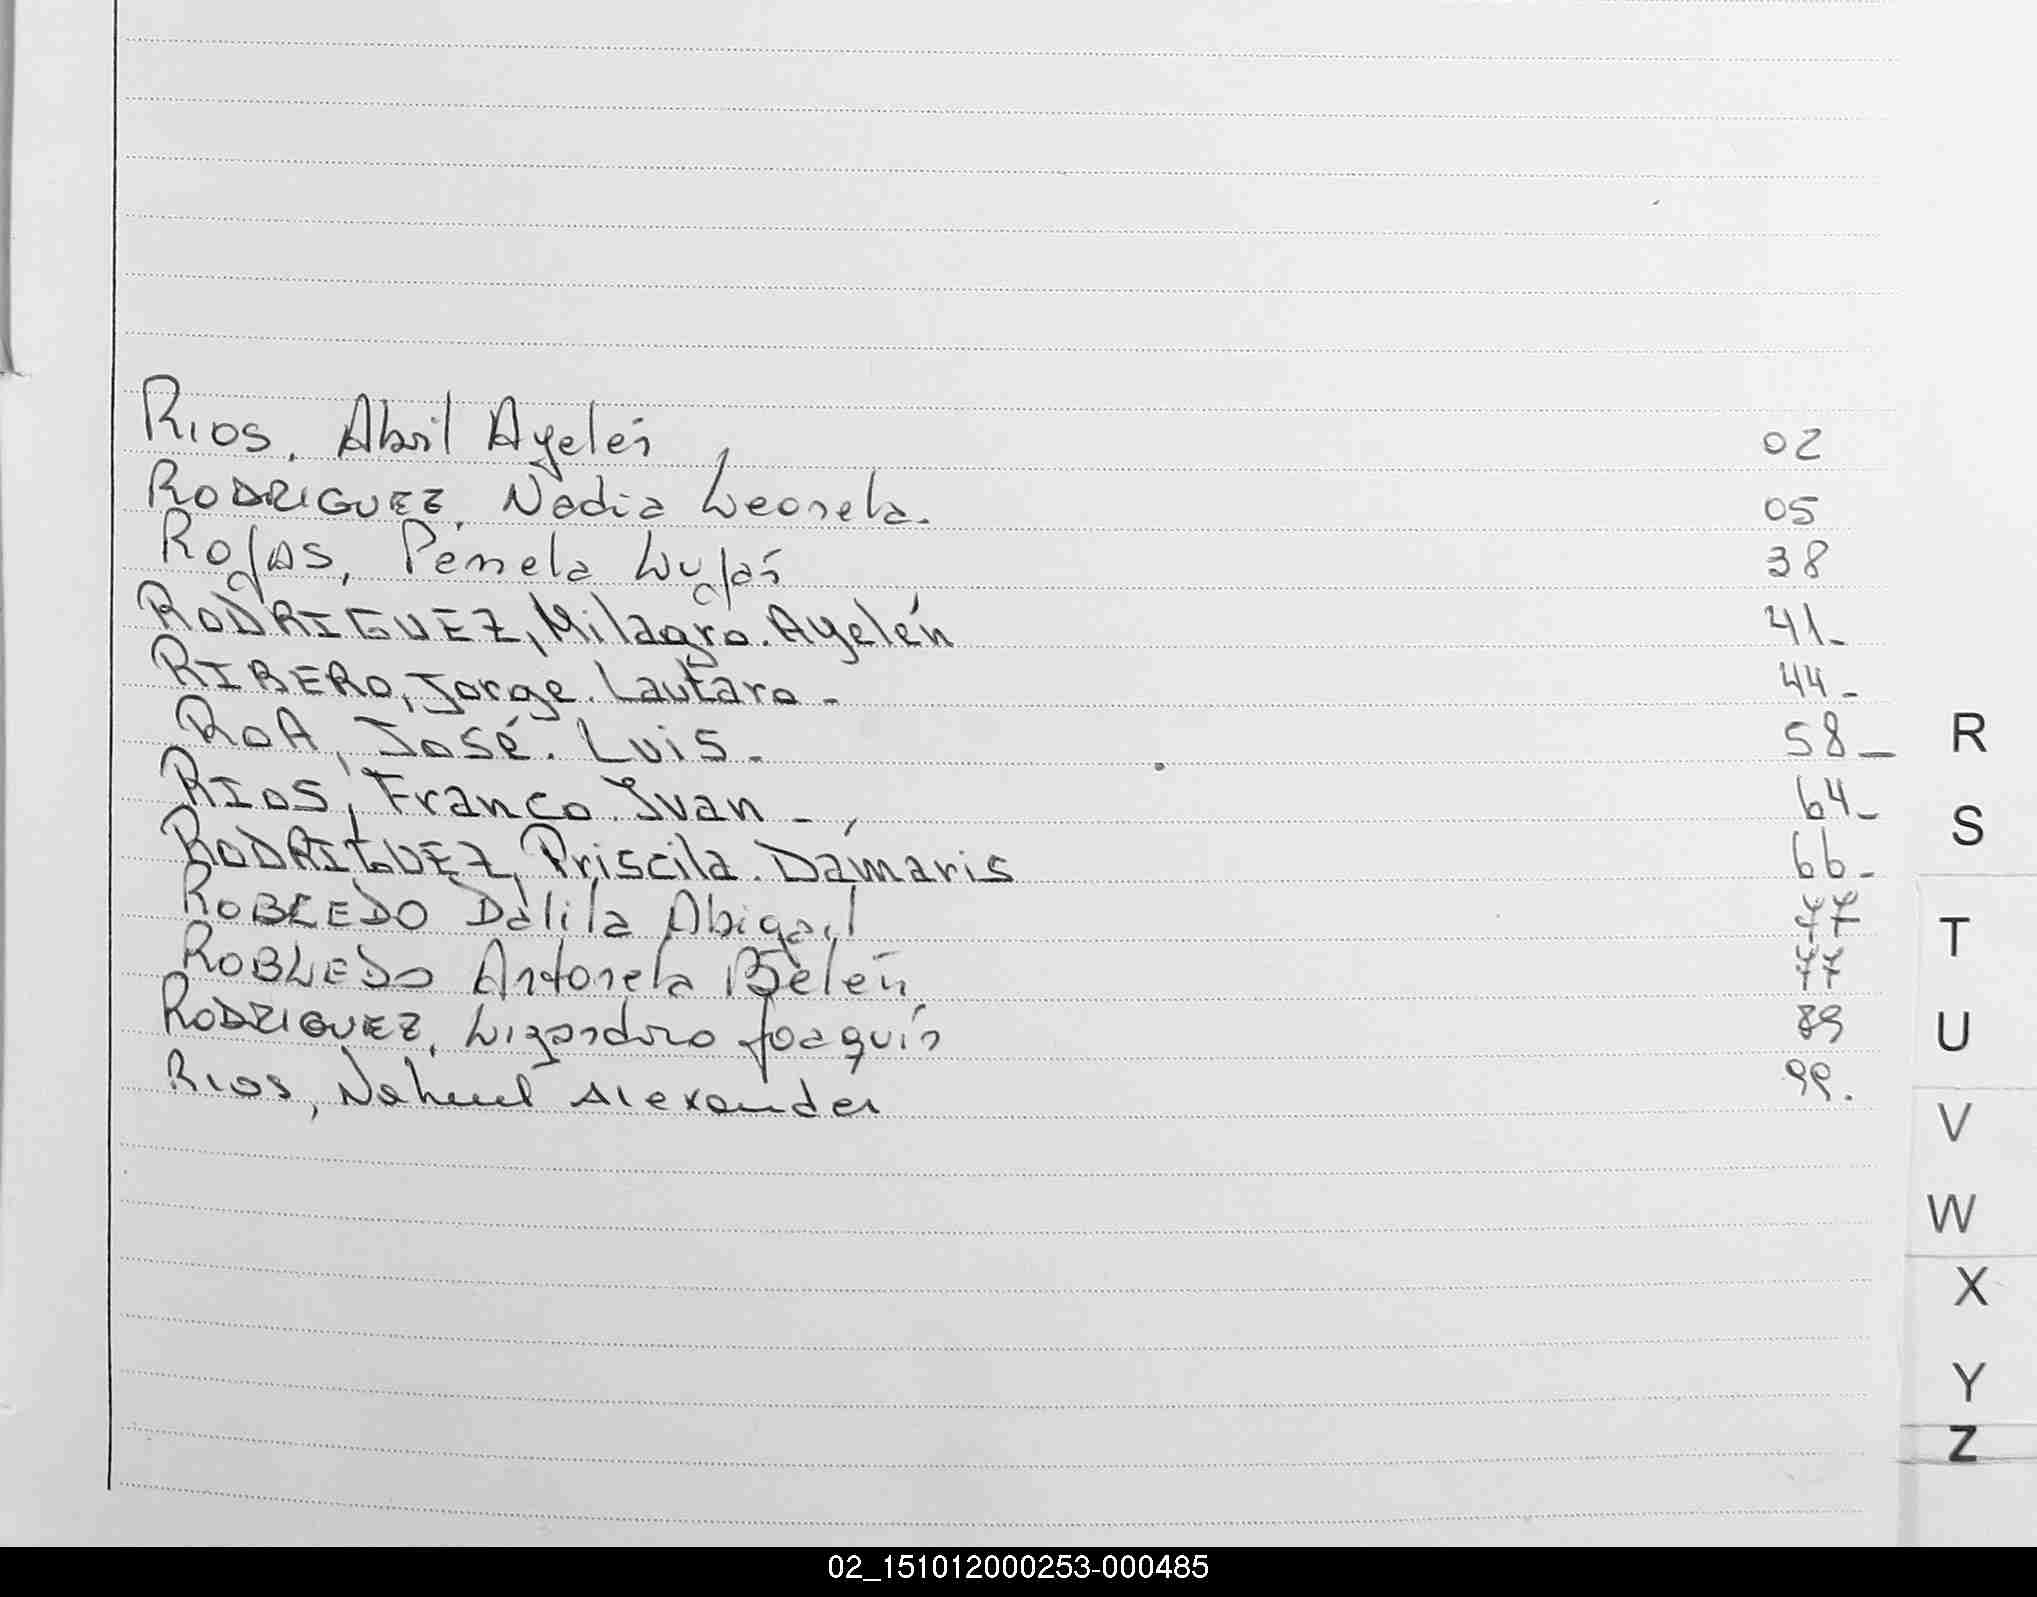 RIOS, Abril Ayelén 02
RODRIGUEZ, Nadia Leonela. 05
ROJAS, Pamela Luján 38
RODRIGUEZ, Milagro. Ayelén 41_
RIBERO, Jorge. Lautaro - 44_
ROA, José. Luis - 58_
RIOS, Franco. Ivan - 64_
RODRIGUEZ, Priscila. Dámaris 66_
ROBLEDO Dalila Abigail 77
ROBLEDO Antonela Belén 77
RODRIGUEZ, Lizandro Joaquín 89
RIOS, Nahuel Alexander 99.
R
S
T
U
V
W
X
Y
Z
02_151012000253-000485